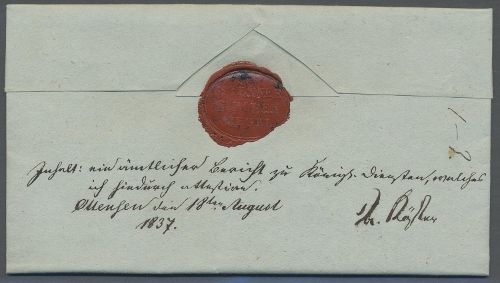 Inhalt: ein ämtlicher Bericht zu Königl. Diensten, welches
ich hiedurch attestire.
Ottensen den 18ten August
1837.
Köster
1-2